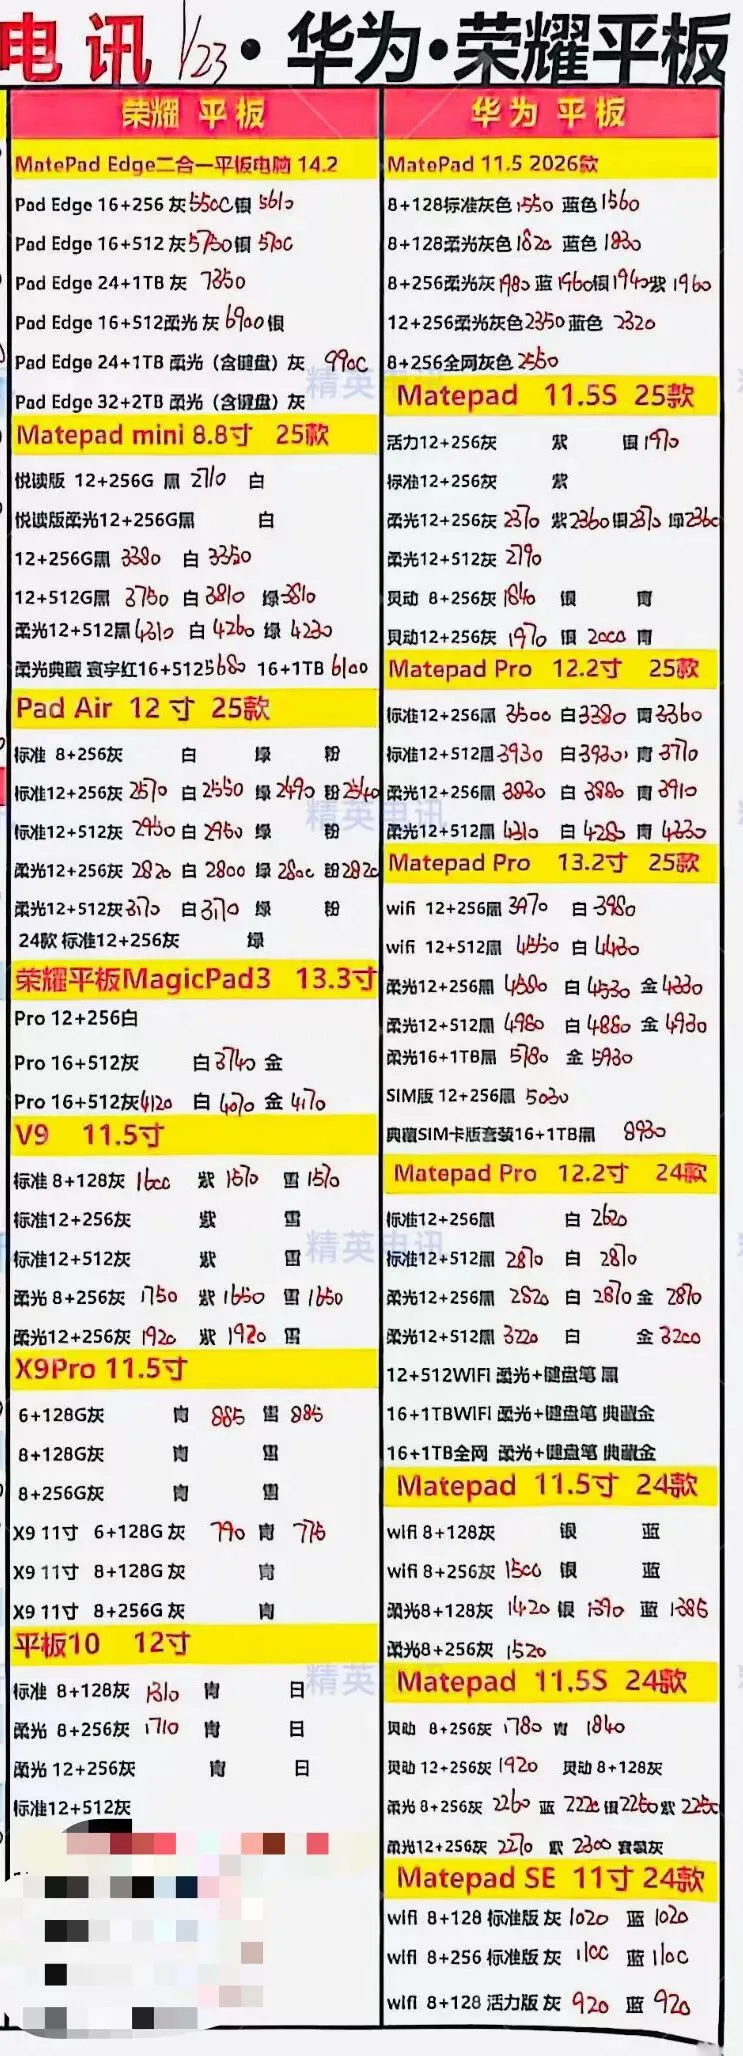 电讯 1/23 · 华为 · 荣耀平板
荣耀 平板
MatePad Edge二合一平板电脑 14.2
Pad Edge 16+256 灰 5500 银 5610
Pad Edge 16+512 灰 5750 银 5700
Pad Edge 24+1TB 灰 7350
Pad Edge 16+512柔光 灰 6900 银
Pad Edge 24+1TB 柔光（含键盘）灰 9900
Pad Edge 32+2TB 柔光（含键盘）灰
Matepad mini 8.8寸 25款
悦读版 12+256G 黑 2710 白
悦读版柔光12+256G黑 白
12+256G黑 3380 白 3350
12+512G黑 3750 白 3810 绿 3810
柔光12+512黑 4310 白 4260 绿 4230
柔光典藏 寰宇红16+512 5680 16+1TB 6100
Pad Air 12 寸 25款
标准 8+256灰 白 绿 粉
标准12+256灰 2570 白 2550 绿 2490 粉 2540
标准12+512灰 2950 白 2950 绿 粉
柔光12+256灰 2820 白 2800 绿 2800 粉 2820
柔光12+512灰 3170 白 3170 绿 粉
24款 标准12+256灰 绿
荣耀平板MagicPad3 13.3寸
Pro 12+256白
Pro 16+512灰 白 3740 金
Pro 16+512灰 4120 白 4070 金 4170
V9 11.5寸
标准 8+128灰 1600 紫 1570 雪 1570
标准12+256灰 紫 雪
标准12+512灰 紫 雪
柔光 8+256灰 1750 紫 1650 雪 1650
柔光12+256灰 1920 紫 1920 雪
X9Pro 11.5寸
6+128G灰 青 885 雪 885
8+128G灰 青 雪
8+256G灰 青 雪
X9 11寸 6+128G 灰 790 青 775
X9 11寸 8+128G 灰 青
X9 11寸 8+256G 灰 青
平板10 12寸
标准 8+128灰 1310 青 白
柔光 8+256灰 1710 青 白
柔光 12+256灰 青 白
标准12+512灰
华为 平板
MatePad 11.5 2026款
8+128标准灰色 1550 蓝色 1560
8+128柔光灰色 1820 蓝色 1830
8+256柔光灰 1980 蓝 1960 银 1940 紫 1960
12+256柔光灰色 2350 蓝色 2320
8+256全网灰色 2550
Matepad 11.5S 25款
活力12+256灰 紫 银 1970
标准12+256灰 紫
柔光12+256灰 2370 紫 2360 银 2370 绿 2360
柔光12+512灰 2790
灵动 8+256灰 1840 银 青
灵动12+256灰 1970 银 2000 青
Matepad Pro 12.2寸 25款
标准12+256黑 3500 白 3380 青 3360
标准12+512黑 3930 白 3930 青 3770
柔光12+256黑 3930 白 3980 青 3910
柔光12+512黑 4310 白 4280 青 4330
Matepad Pro 13.2寸 25款
wifi 12+256黑 3970 白 3980
wifi 12+512黑 4550 白 4430
柔光12+256黑 4580 白 4530 金 4330
柔光12+512黑 4980 白 4880 金 4930
柔光16+1TB黑 5780 金 5930
SIM版 12+256黑 5030
典藏SIM卡版套装16+1TB黑 8930
Matepad Pro 12.2寸 24款
标准12+256黑 白 2620
标准12+512黑 2870 白 2870
柔光12+256黑 2820 白 2870 金 2870
柔光12+512黑 3220 白 金 3200
12+512WIFI 柔光+键盘笔 黑
16+1TBWIFI 柔光+键盘笔 典藏金
16+1TB全网 柔光+键盘笔 典藏金
Matepad 11.5寸 24款
wifi 8+128灰 银 蓝
wifi 8+256灰 1500 银 蓝
柔光8+128灰 1420 银 1390 蓝 1385
柔光8+256灰 1520
Matepad 11.5S 24款
灵动 8+256灰 1780 青 1840
灵动 12+256灰 1920 灵动 8+128灰
柔光 8+256灰 2260 蓝 2220 银 2250 紫 2250
柔光12+256灰 2270 紫 2300 套装灰
Matepad SE 11寸 24款
wifi 8+128 标准版 灰 1020 蓝 1020
wifi 8+256 标准版 灰 1100 蓝 1100
wifi 8+128 活力版 灰 920 蓝 920
精英电讯
精英电讯
精英电讯
精英电讯